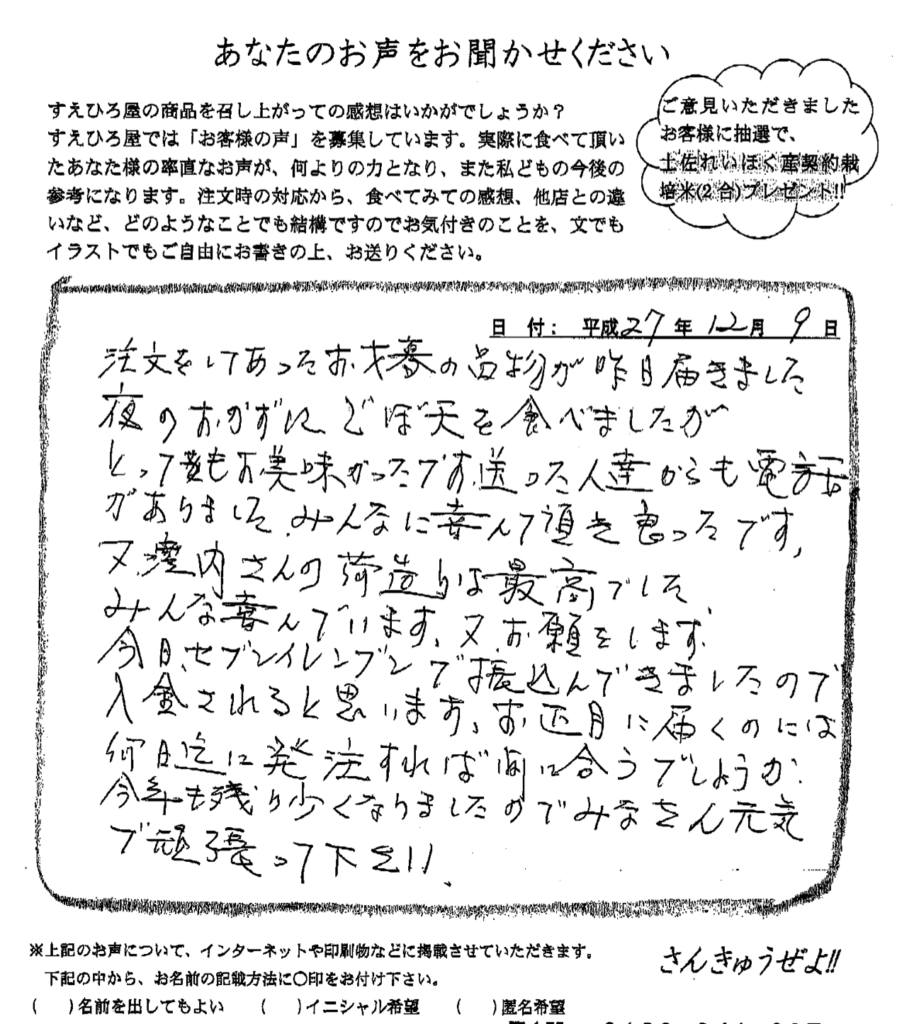 あなたのお声をお聞かせください
すえひろ屋の商品を召し上がっての感想はいかがでしょうか？
すえひろ屋では「お客様の声」を募集しています。実際に食べて頂い
たあなた様の率直なお声が、何よりの力となり、また私どもの今後の
参考になります。注文時の対応から、食べてみての感想、他店との違
いなど、どのようなことでも結構ですのでお気付きのことを、文でも
イラストでもご自由にお書きの上、お送りください。
ご意見いただきました
お客様に抽選で、
土佐れいほく産契約栽
培米(2合)プレゼント!!
日 付： 平成27年 12月 9日
注文をしてあったお才暮の品物が昨日届きました
夜のおかずにどぼ天を食べましたが
とってもお美味かったです。送った人達からも電話
がありました。みんなに喜んで頂き良ったです。
又、内さんの荷造りは最高でした
みんな喜んでいます。又お願をします。
今日、セブンイレンブンで振込んできましたので
入金されると思います。お正月に届くのには
何日迄に発注すれば間に合うでしょうか。
今年も残り少くなりましたのでみなさん元気
で頑張って下さい。
※上記のお声について、インターネットや印刷物などに掲載させていただきます。
下記の中から、お名前の記載方法に〇印をお付け下さい。
さんきゅうぜよ!!
(　)名前を出してもよい　(　)イニシャル希望　(　)匿名希望